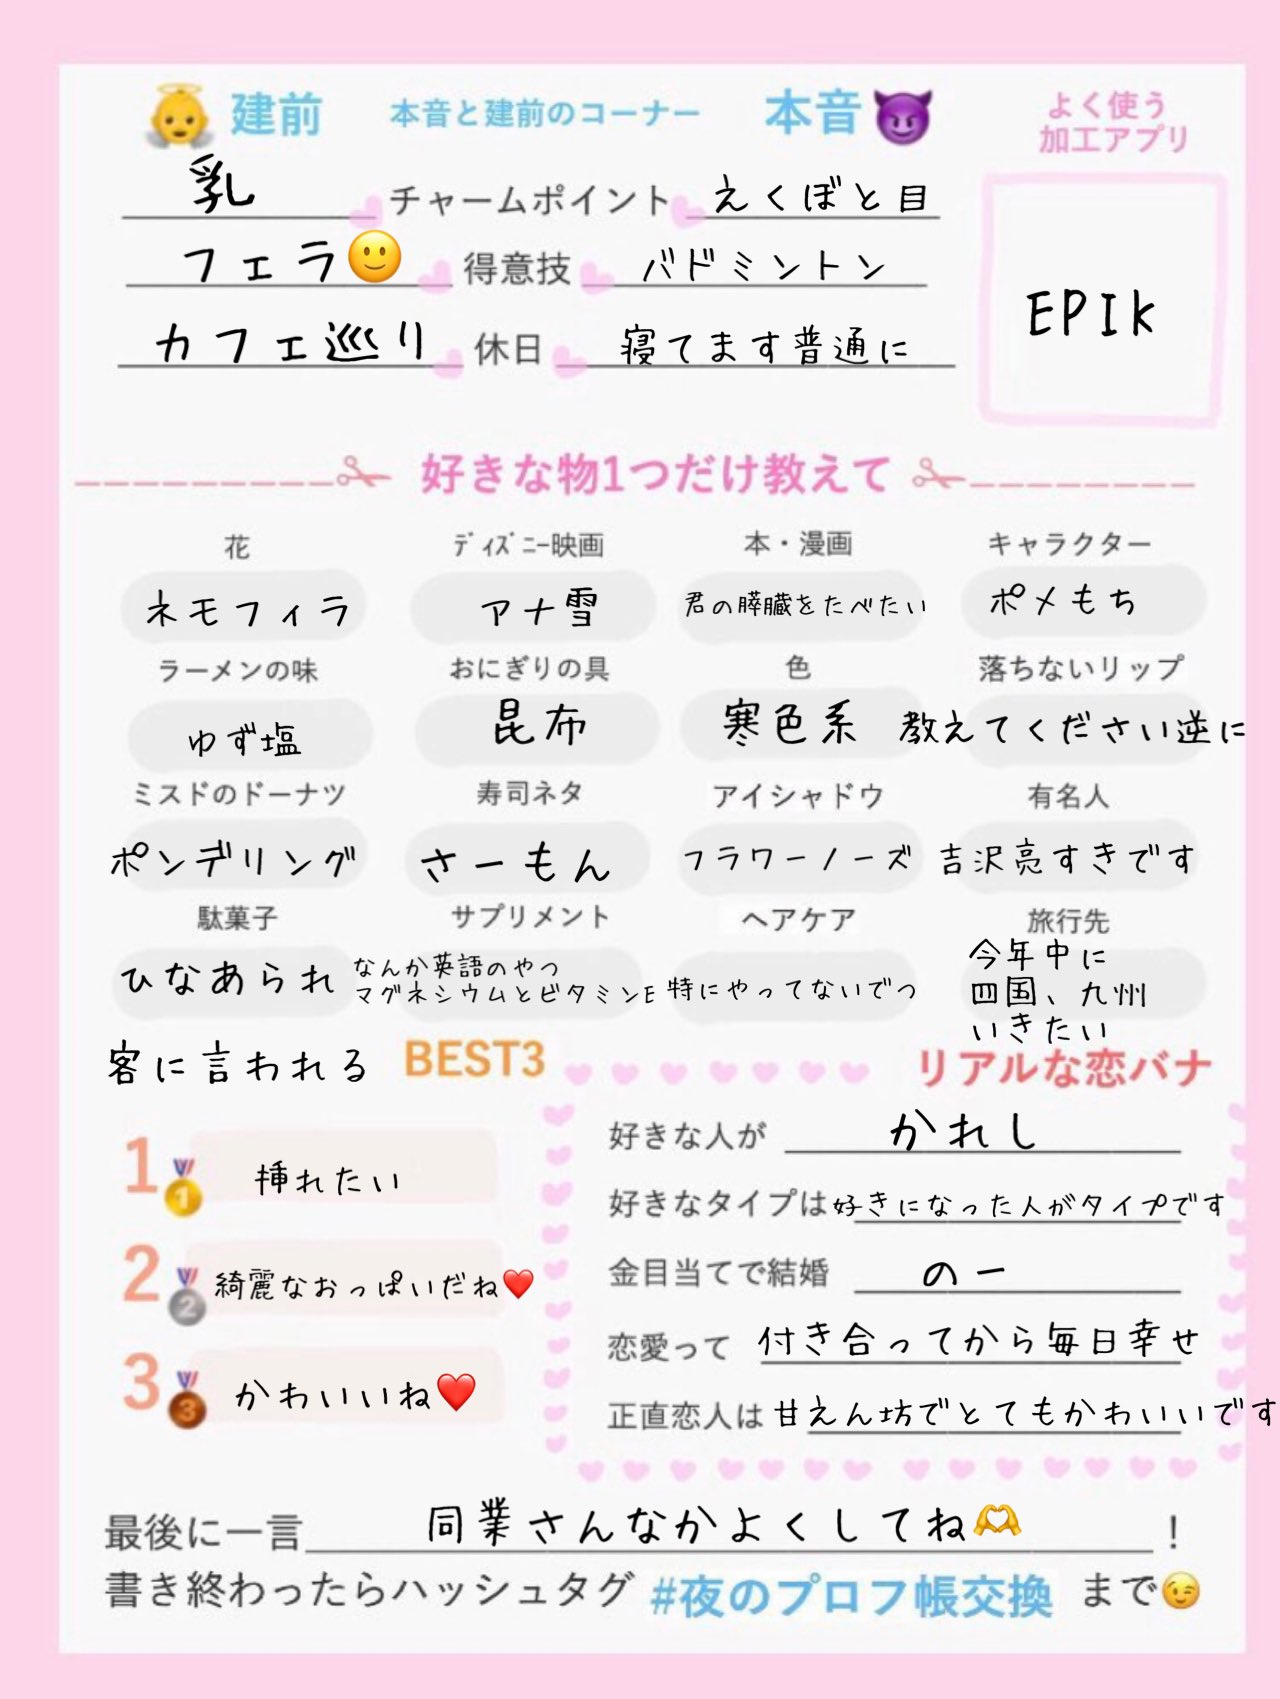 建前 本音と建前のコーナー 本音 よく使う
加工アプリ
乳 チャームポイント えくぼと目
フェラ🙂 得意技 バドミントン
EPIk
カフェ巡り 休日 寝てます普通に
好きな物1つだけ教えて
花 ディズニー映画 本・漫画 キャラクター
ネモフィラ アナ雪 君の膵臓をたべたい ポメもち
ラーメンの味 おにぎりの具 色 落ちないリップ
ゆず塩 昆布 寒色系 教えてください逆に
ミスドのドーナツ 寿司ネタ アイシャドウ 有名人
ポンデリング さーもん フラワーノーズ 吉沢亮すきです
駄菓子 サプリメント ヘアケア 旅行先
ひなあられ なんか英語のやつ
マグネシウムとビタミンE 特にやってないでつ 今年中に
四国、九州
いきたい
客に言われる BEST3
1 挿れたい
2 綺麗なおっぱいだね❤️
3 かわいいね❤️
リアルな恋バナ
好きな人が かれし
好きなタイプは 好きになった人がタイプです
金目当てで結婚 のー
恋愛って 付き合ってから毎日幸せ
正直恋人は 甘えん坊でとてもかわいいです
最後に一言 同業さんなかよくしてね🫶 !
書き終わったらハッシュタグ #夜のプロフ帳交換 まで😉